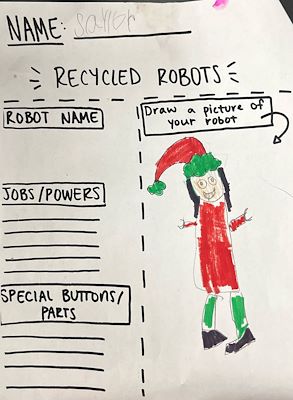 NAME:
RECYCLED ROBOTS
ROBOT NAME
Draw a picture of
your robot
JOBS/POWERS
SPECIAL BUTTONS/
PARTS